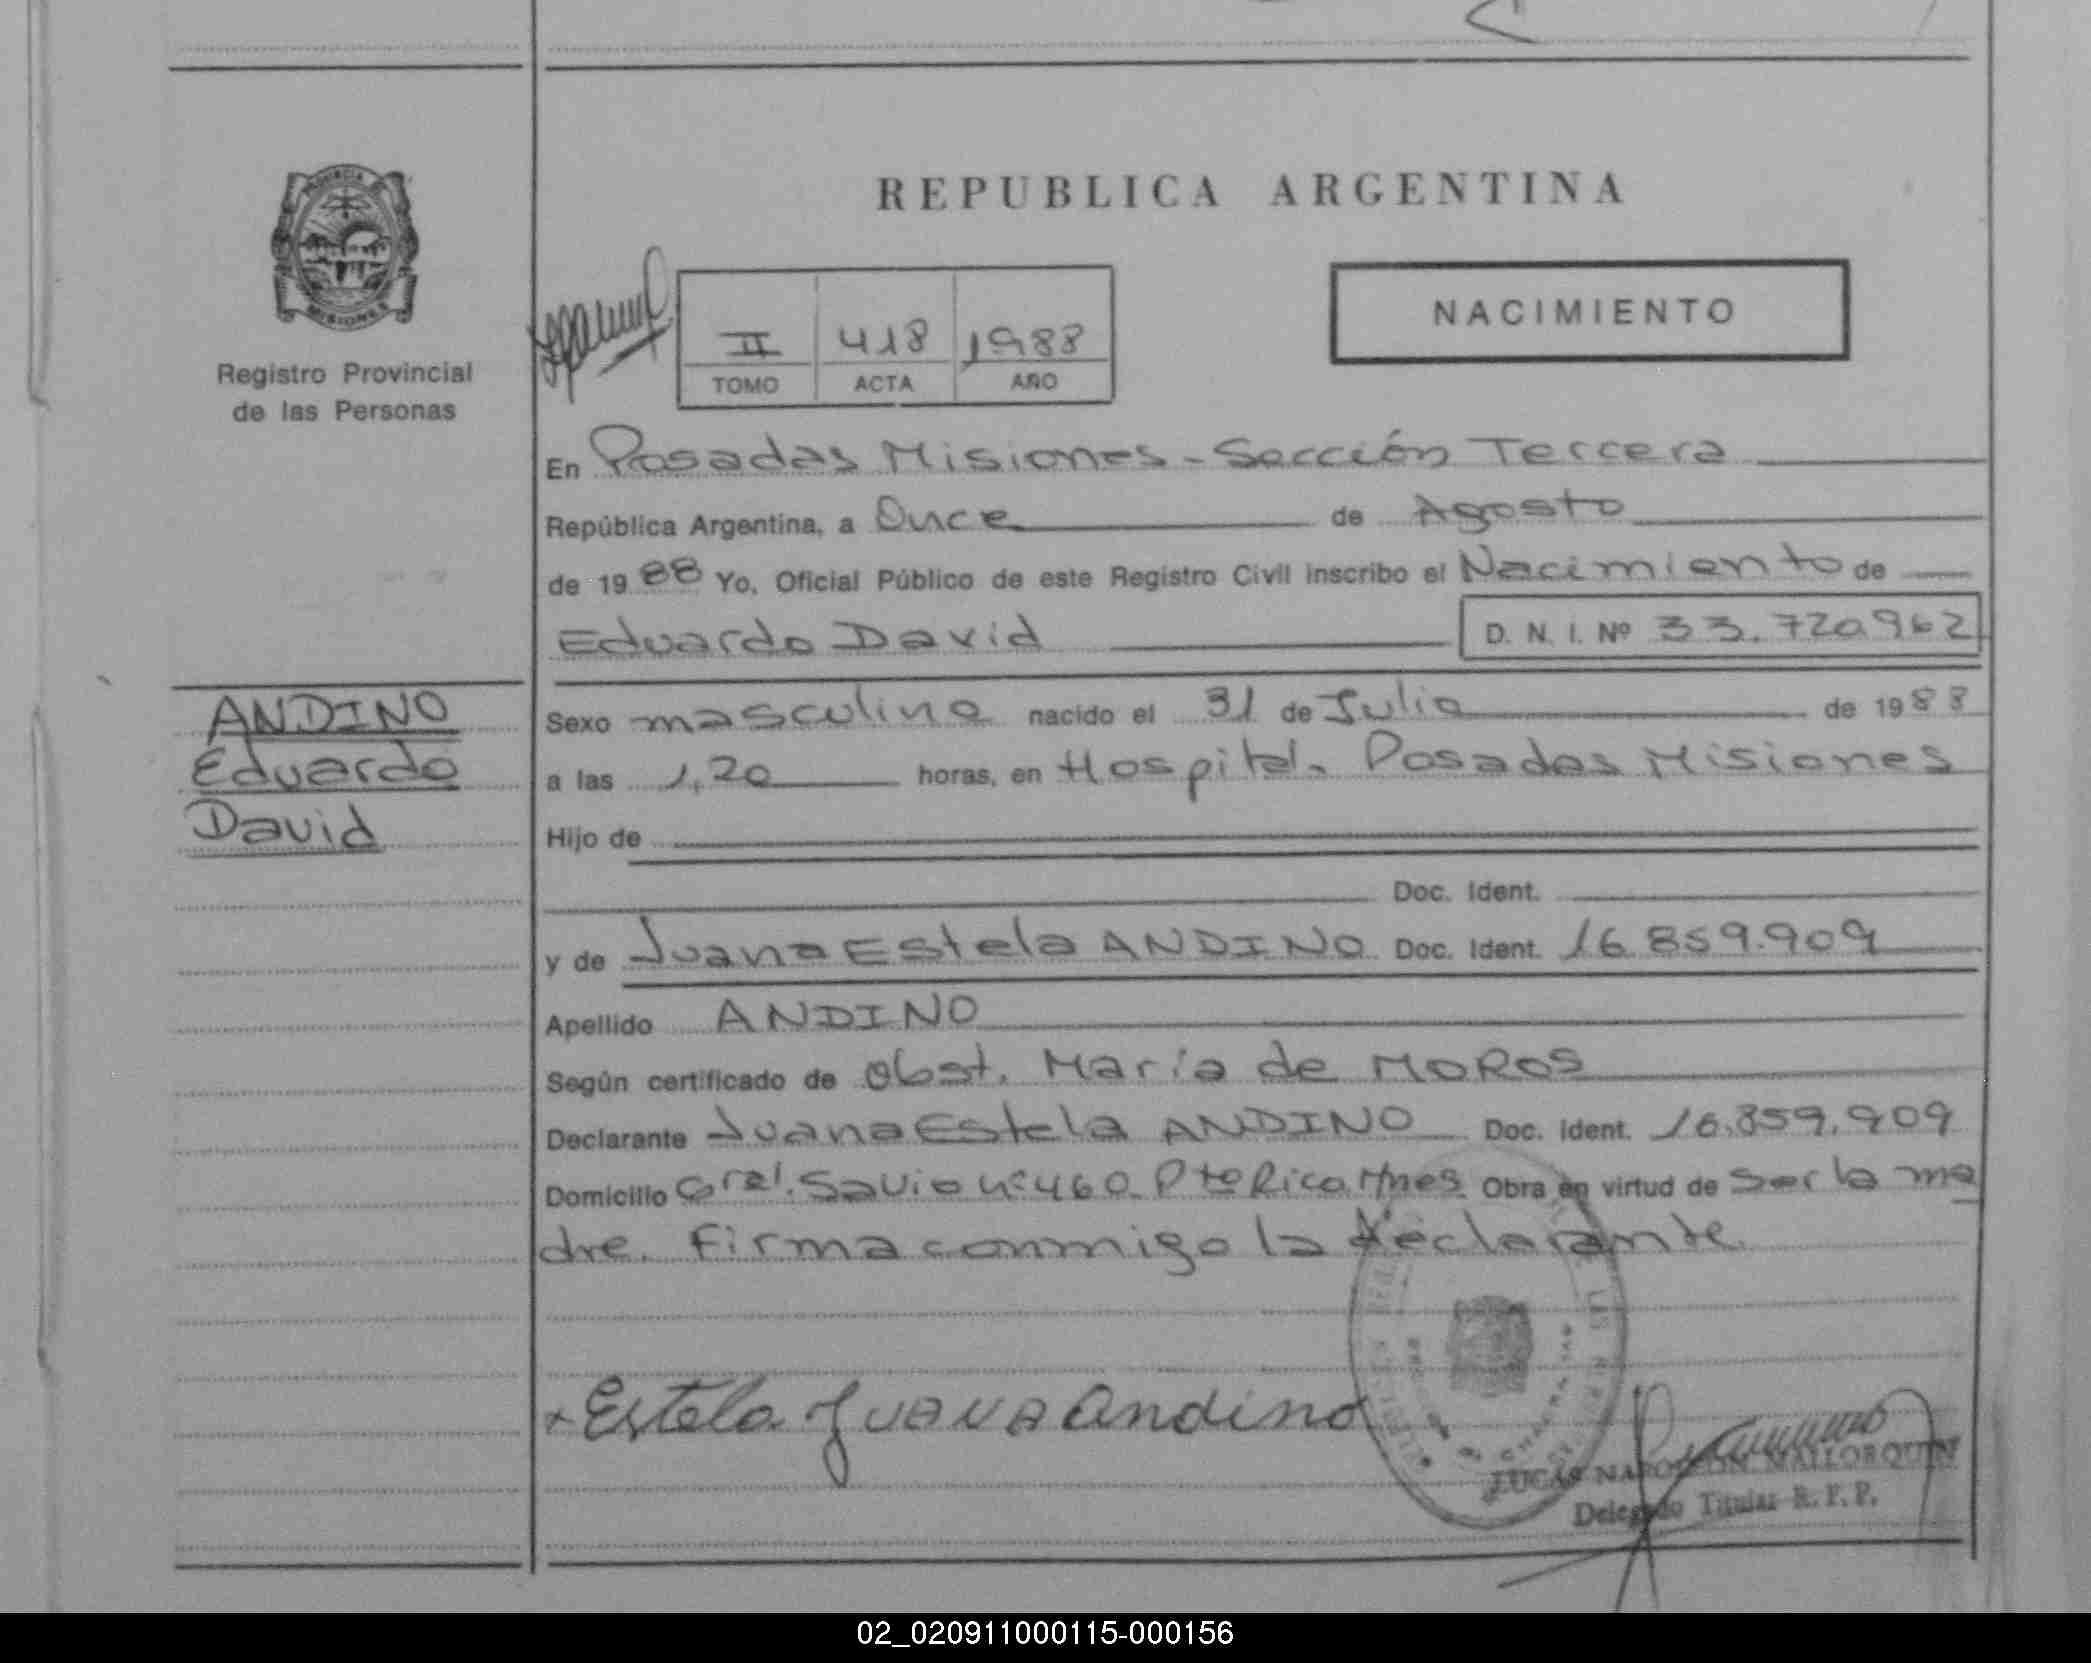 PROVINCIA DE
MISIONES
Registro Provincial
de las Personas
REPUBLICA ARGENTINA
II 418 1988
TOMO ACTA AÑO
NACIMIENTO
En Posadas Misiones - Sección Tercera
República Argentina, a Once de Agosto
de 19 88 Yo, Oficial Público de este Registro Civil inscribo el Nacimiento de
Eduardo David D. N. I. Nº 33.720962
ANDINO
Eduardo
David
Sexo masculino nacido el 31 de Julio de 19 88
a las 1,20 horas, en Hospital. Posadas Misiones
Hijo de
Doc. Ident.
y de Juana Estela ANDINO Doc. Ident. 16.859.909
Apellido ANDINO
Según certificado de Obst. María de MOROS
Declarante Juana Estela ANDINO Doc. Ident. 16.859.909
Domicilio Gral. Savio nº 460. Pto Rico. Mnes. Obra en virtud de Ser la ma
dre. Firma conmigo la declarante.
LAS
+ Estela Juana Andino
LUCAS NAPOLEON MALLORQUIN
Delegado Titular R. P. P.
02_020911000115-000156